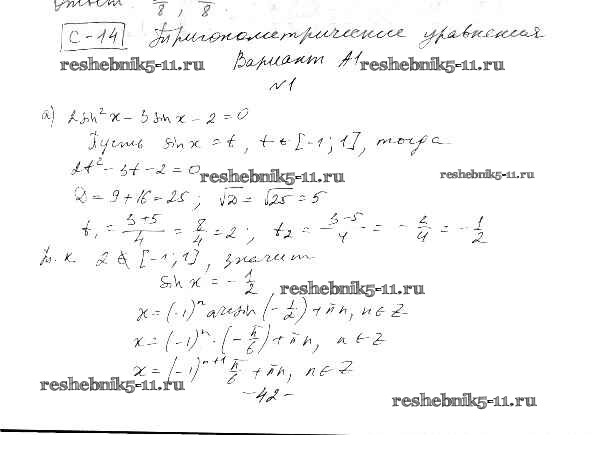 π/8, π/8.
С-14 Тригонометрические уравнения
reshebnik5-11.ru Вариант А1 reshebnik5-11.ru
№1
а) 2sin²x - 3sinx - 2 = 0
Пусть sinx = t, t ∈ [-1; 1], тогда
2t² - 3t - 2 = 0 reshebnik5-11.ru reshebnik5-11.ru
D = 9 + 16 = 25; √D = √25 = 5
t₁ = (3+5)/4 = 8/4 = 2; t₂ = (3-5)/4 = -2/4 = -1/2
Т.к. 2 ∉ [-1; 1], значит
sinx = -1/2 reshebnik5-11.ru
x = (-1)ⁿ arcsin(-1/2) + πn, n ∈ Z
x = (-1)ⁿ · (-π/6) + πn, n ∈ Z
x = (-1)ⁿ⁺¹ π/6 + πn, n ∈ Z
reshebnik5-11.ru
-42-
reshebnik5-11.ru